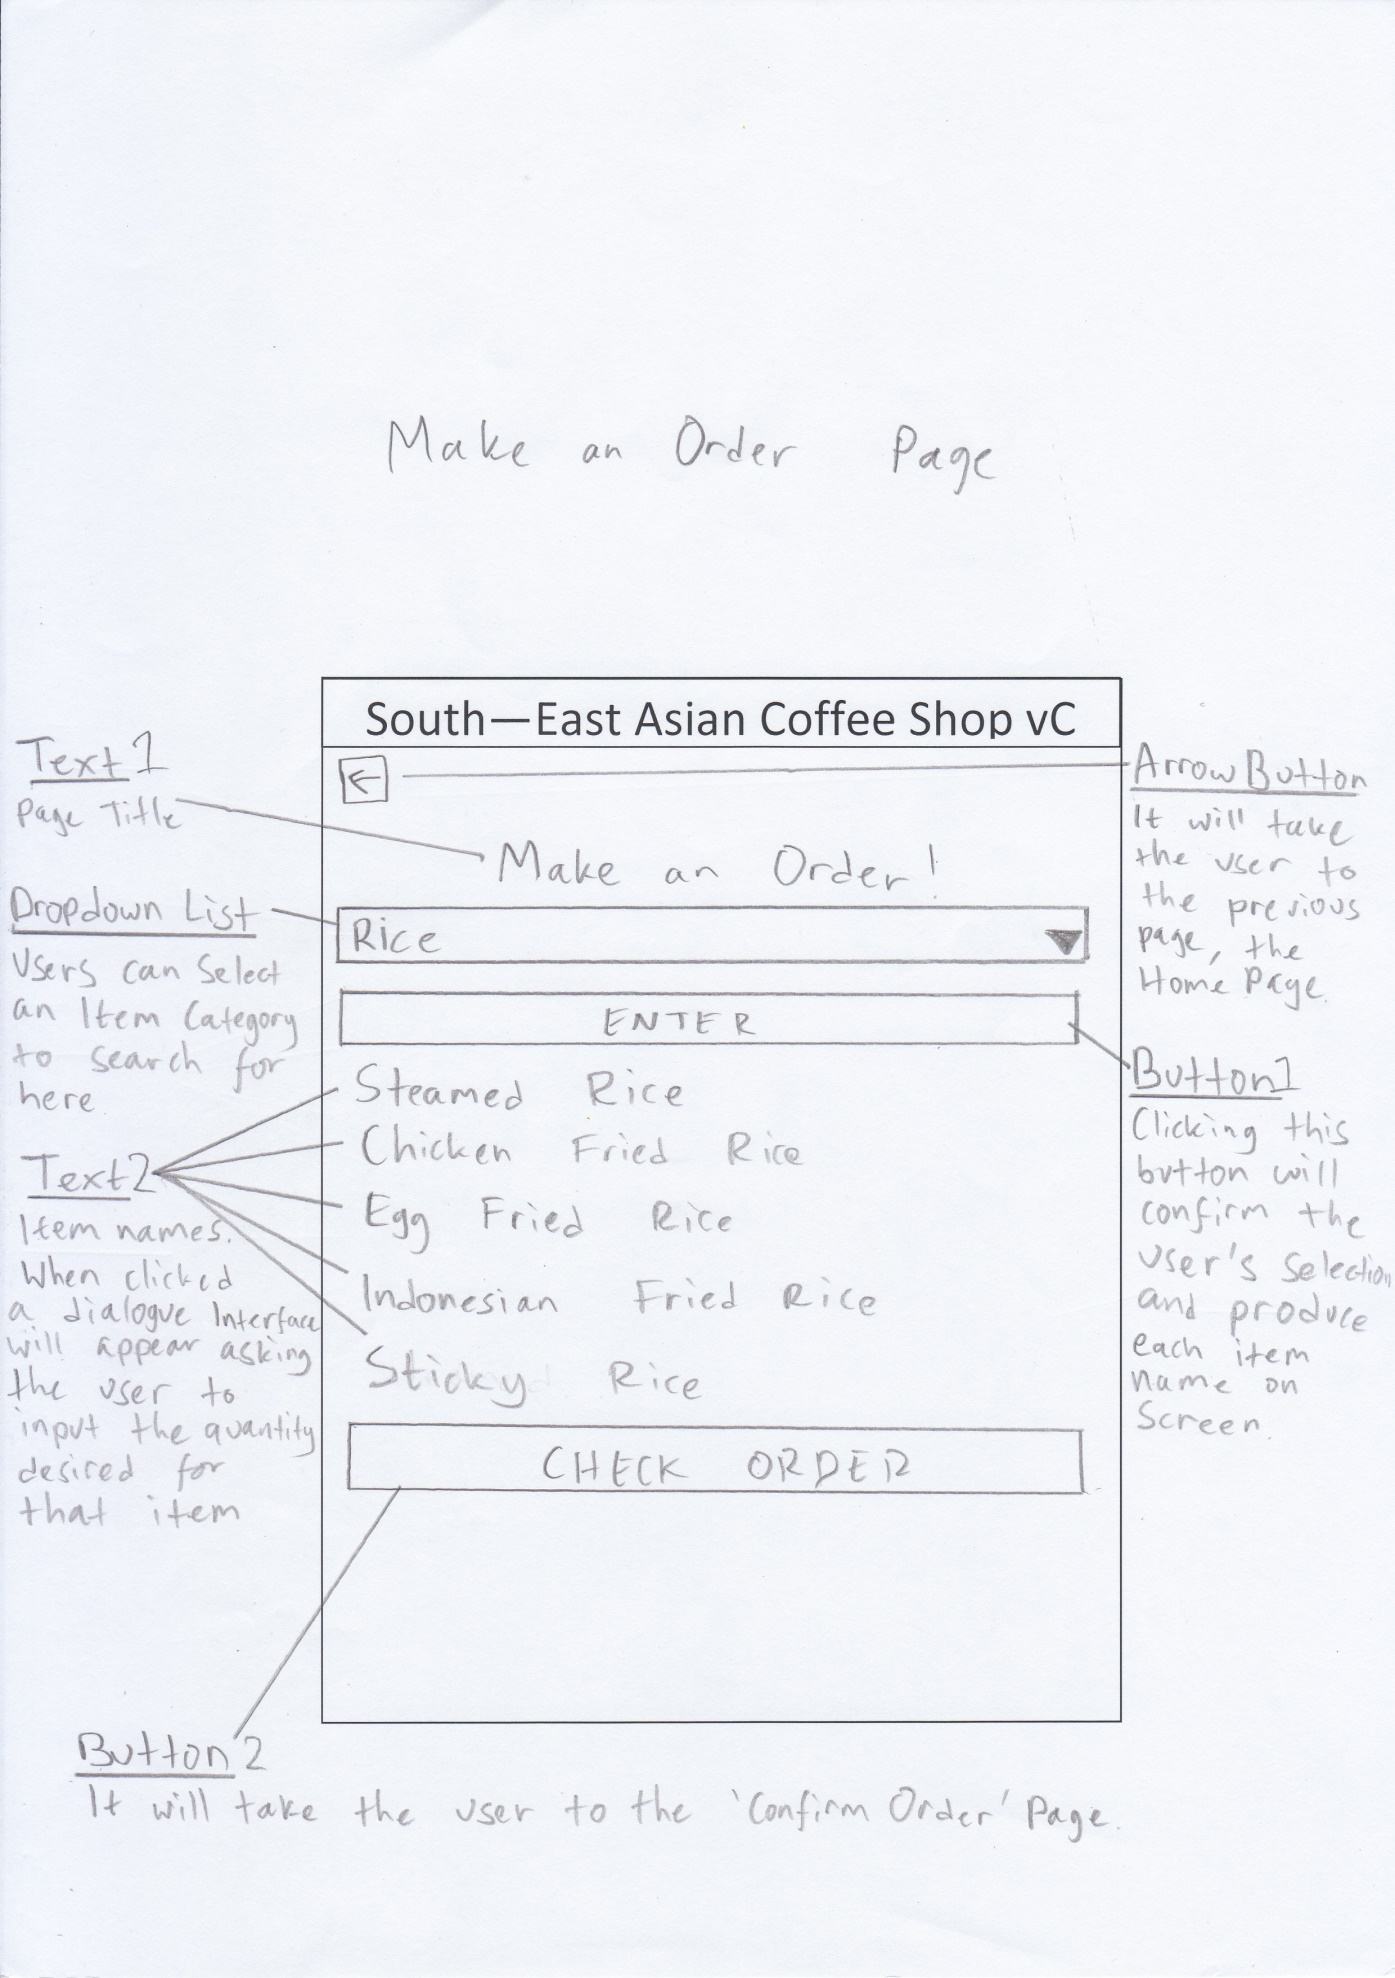 Make an Order Page
South—East Asian Coffee Shop vC
Text1
Page Title
Dropdown List
Users can Select
an Item Category
to search for
here
Text2
Item names.
When clicked
a dialogue Interface
will appear asking
the user to
input the quantity
desired for
that item
←
Make an Order!
Rice
ENTER
Steamed Rice
Chicken Fried Rice
Egg Fried Rice
Indonesian Fried Rice
Sticky Rice
CHECK ORDER
Arrow Button
It will take
the user to
the previous
page, the
Home Page.
Button1
Clicking this
button will
confirm the
user's selection
and produce
each item
name on
Screen.
Button2
It will take the user to the 'Confirm Order' Page.